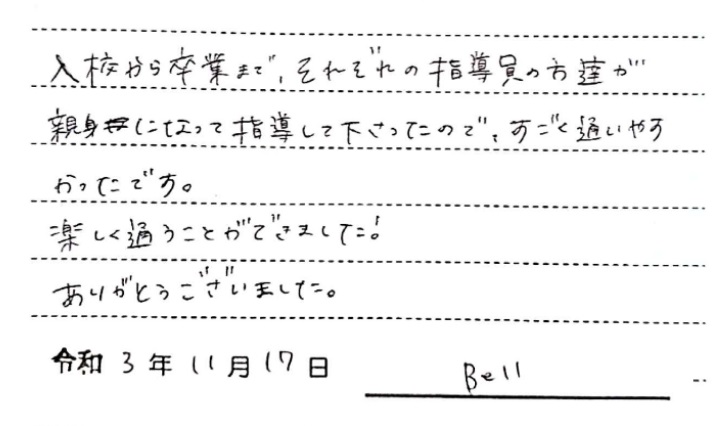 入校から卒業まで、それぞれの指導員の方達が
親身になって指導して下さったので、すごく通いやす
かったです。
楽しく通うことができました!
ありがとうございました。
令和 3 年 11 月 17 日 Bell